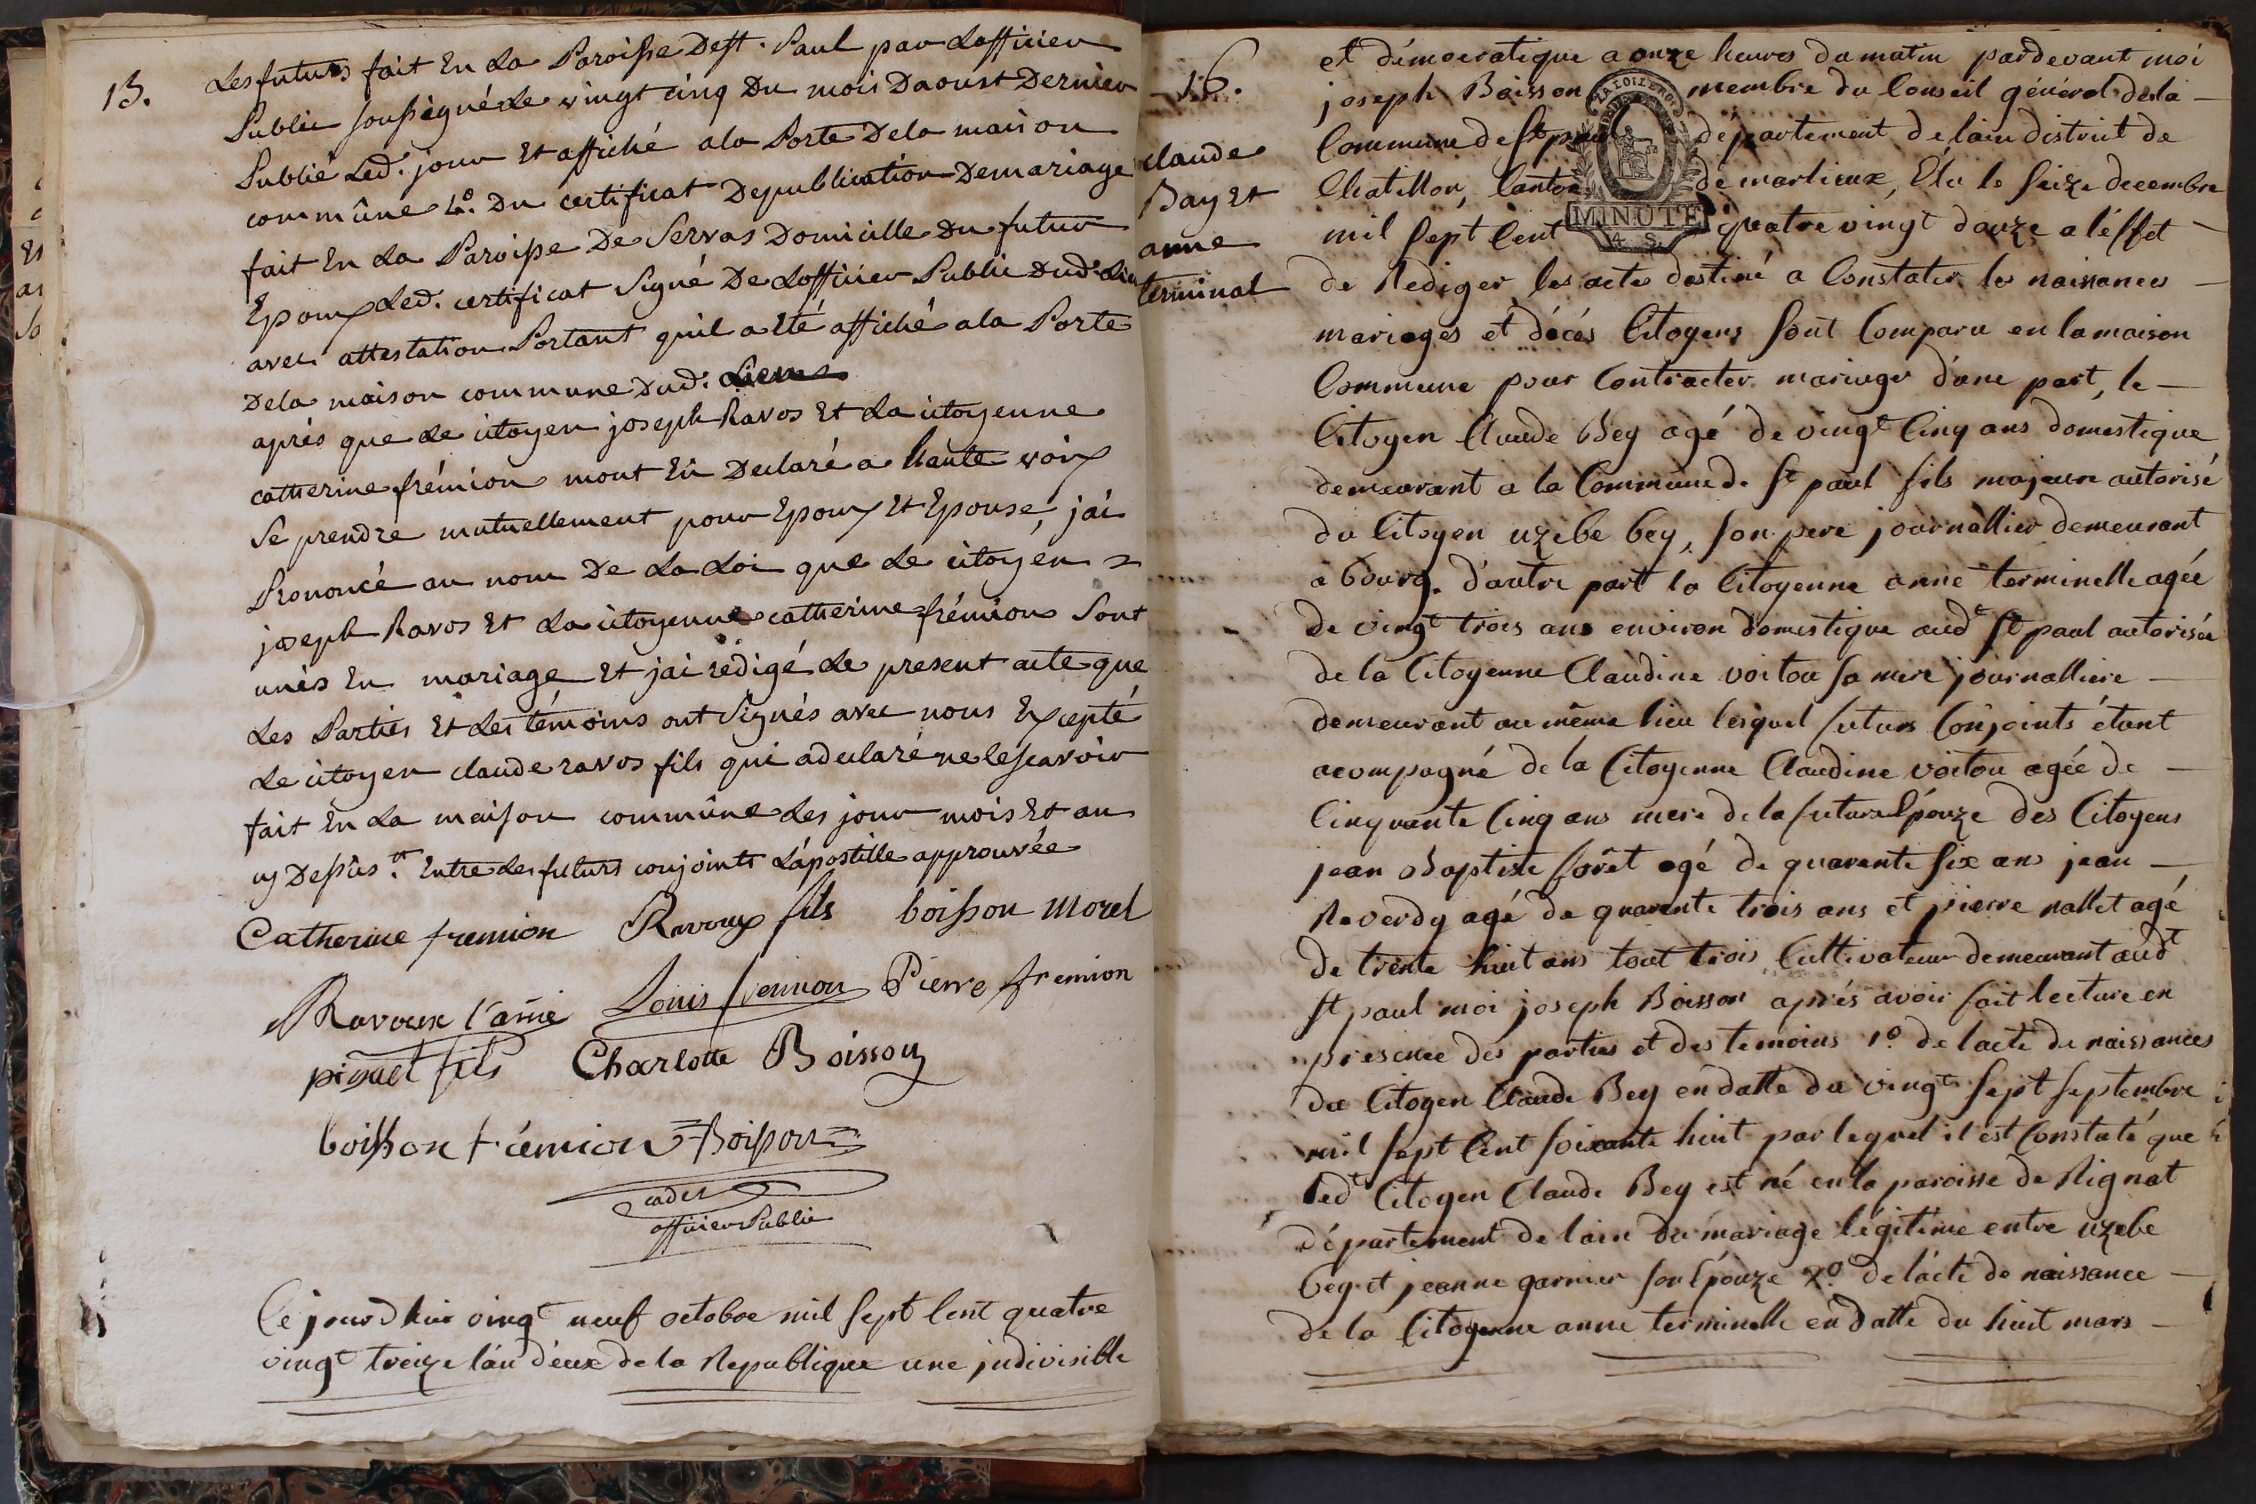 15.
Les futurs fait En La Paroisse De st. Paul par Lofficier
Public soussigné Le vingt cinq Du mois Daoust Dernier
Publié Led. jour Et affiché a la Porte Dela maison
commûne 4.° Du certificat Depublication Demariage
fait En La Paroisse De Servas Domicille Du futur
Epoux Led. certificat Signé De Lofficier Public Dud. Lieu
avec attestation Portant quil a Eté affiché ala Porte
Dela maison commune Dud. Lieu
après que Le citoyen joseph Ravos Et La citoyenne
catherine frémion mont Eû Declaré a haute voix
Se prendre mutuellement pour Epoux Et Epouse, jai
Prononcé au nom De La Loi que Le citoyen
joseph Ravos Et La citoyenne catherine frémion Sont
unis En mariage Et jai rédigé Le present acte que
Les Parties Et Les témoins ont Signés avec nous Excepté
Le citoyen claude ravos fils qui a declaré ne le scavoir
fait En La maison commûne Les jour mois Et an
cy Dessus. Entre Les futurs conjoints Lapostille approuvée
Catherine fremion Ravoux fils boisson Morel
Ravoux l'ainé Louis fremion Pierre fremion
piquet fils Charlotte Boisson
boisson frémion Boisson
cadet
officier Public
Ce jourdhui vingt neuf octobre mil sept Cent quatre
vingt treize lan deux de la Republique une indivisible
16.
claude
Bay Et
anne
terminal
et démocratique a onze heures du matin pardevant moi
joseph Boisson membre du Conseil général dela
Commune de st paul département de lain district de
Chatillon, Canton de marlieux, Elu le seize decembre
mil sept Cent quatre vingt douze a léffet
LA LOI LE ROI
MINUTE
4. S.
de Rediger les actes destiné a Constater les naissances
mariages et décés Citoyens sont Comparu en la maison
Commune pour Contracter mariage d'une part, le
Citoyen Claude Bey agé de vingt Cinq ans domestique
demeurant a la Commune de st paul fils majeure autorisé
du Citoyen uzebe bey, son pere journallier demeurant
a bourg. d'autre part la Citoyenne anne terminelle agée
de vingt trois ans environ domestique audt st paul autorisée
de la Citoyenne Claudine voitou sa mere journalliere
demeurant au même lieu lesquel futurs Conjoints étant
acompagné de la Citoyenne Claudine voitou agée de
Cinquante Cinq ans mere de la future Epouze des Citoyens
jean Baptiste forêt agé de quarente six ans jean
Reverdy agé de quarente trois ans et pierre nallet agé
de trente huit ans tout trois Cultivateur demeurant audt
st paul moi joseph Boisson aprés avoir fait lecture en
presence des parties et des temoins 1.° de lacte de naissances
du Citoyen Claude Bey en datte du vingt sept septembre
mil sept Cent soixante huit par lequel il est Constaté que
ledt Citoyen Claude Bey est né en la paroisse de Rignat
département de lain du mariage légitime entre uzebe
bey et jeanne garnier son Epouze 2.° de lacte de naissance
de la Citoyenne anne terminelle en datte du huit mars